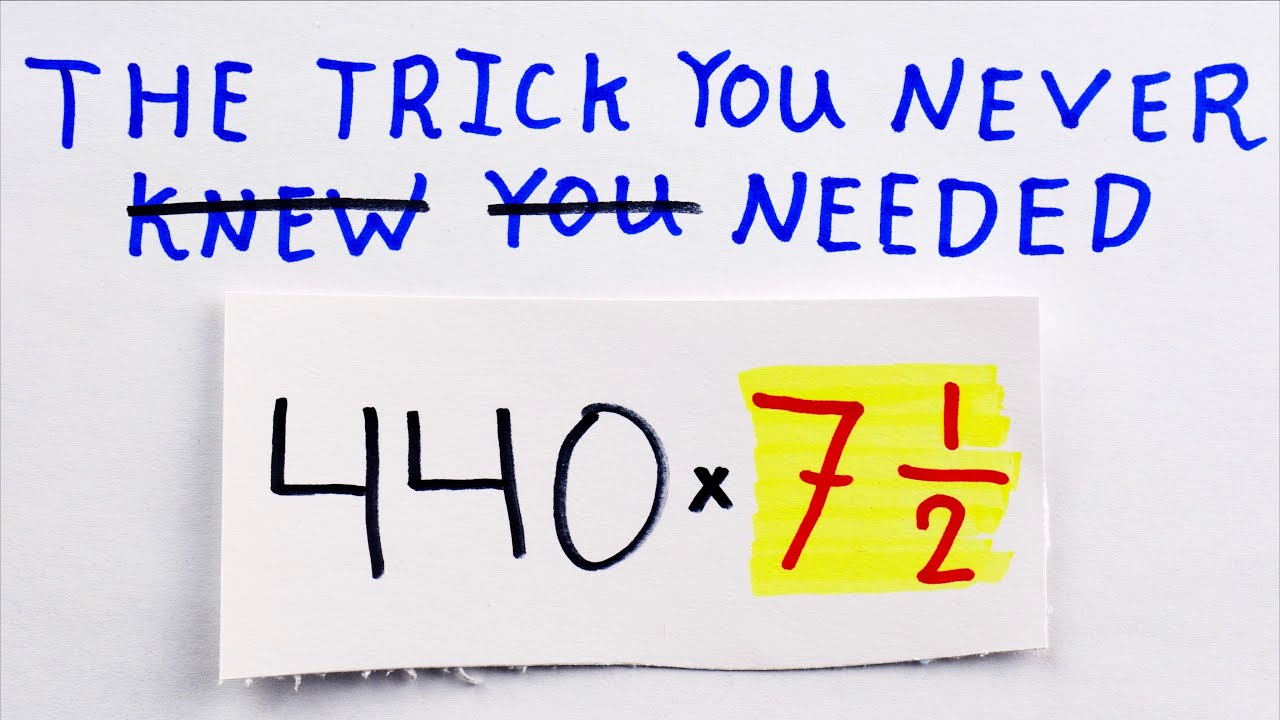 THE TRICK YOU NEVER
KNEW YOU NEEDED
440 × 7 1/2